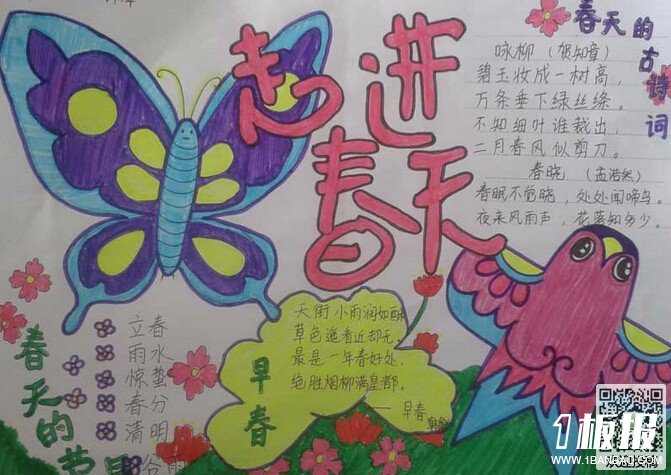 走进
春天
春天的古诗词
咏柳（贺知章）
碧玉妆成一树高，
万条垂下绿丝绦。
不知细叶谁裁出，
二月春风似剪刀。
春晓（孟浩然）
春眠不觉晓，处处闻啼鸟。
夜来风雨声，花落知多少。
天街小雨润如酥
草色遥看近却无，
最是一年春好处，
绝胜烟柳满皇都。
——早春
早春
春天的节
立春
雨水
惊蛰
春分
清明
谷雨
1板报
WWW.1BANBAO.COM